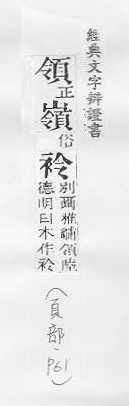 經典文字辨證書
領正嶺俗衿別爾雅釋領陸
德明曰本作衿
(頁部, P61)